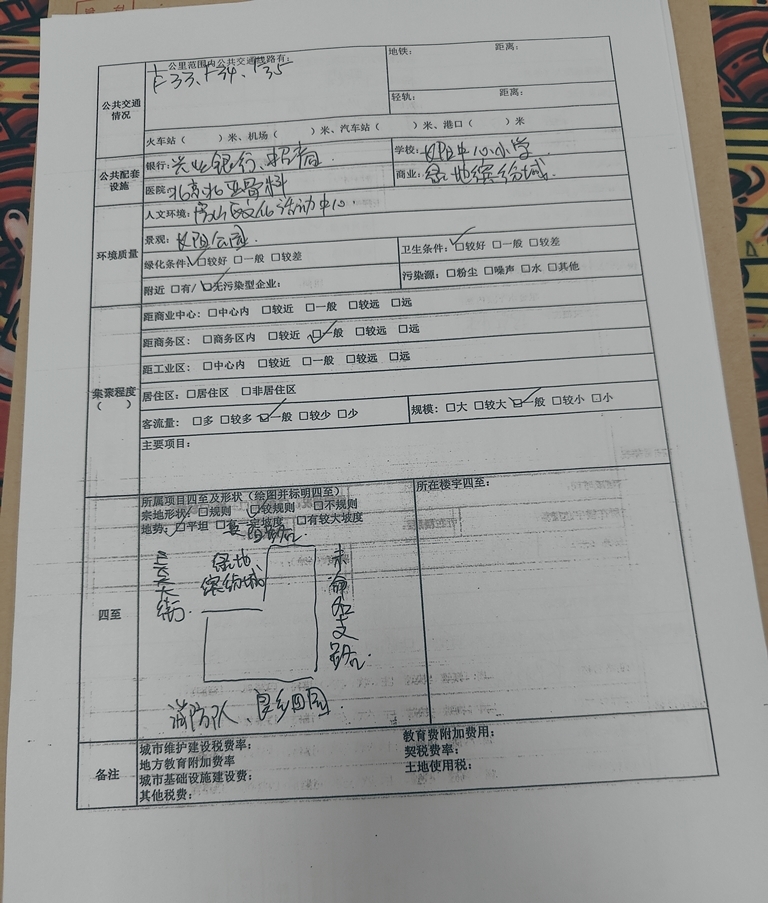 公共交通情况
公里范围内公共交通线路有:
F33、F34、F35
地铁: 距离:
轻轨: 距离:
火车站( )米、机场( )米、汽车站( )米、港口( )米
公共配套设施
银行:兴业银行、招商
学校: 中心小学
医院:北京北亚骨科
商业:绿地缤纷城
环境质量
人文环境:房山区文化活动中心
景观:长阳公园
绿化条件:☑较好 □一般 □较差
卫生条件:☑较好 □一般 □较差
附近 □有/☑无污染型企业:
污染源:□粉尘 □噪声 □水 □其他
集聚程度( )
距商业中心:□中心内 □较近 □一般 □较远 □远
距商务区:□商务区内 □较近 ☑一般 □较远 □远
距工业区:□中心内 □较近 □一般 □较远 □远
居住区:□居住区 □非居住区
客流量:□多 □较多 ☑一般 □较少 □少
规模:□大 □较大 ☑一般 □较小 □小
主要项目:
四至
所属项目四至及形状(绘图并标明四至)
宗地形状:□规则 ☑较规则 □不规则
地势:☑平坦 □有一定坡度 □有较大坡度
所在楼宇四至:
绿地
缤纷城
大街
支路
消防队 良乡四园
备注
城市维护建设税费率:
地方教育附加费率
城市基础设施建设费:
其他税费:
教育费附加费用:
契税费率:
土地使用税: